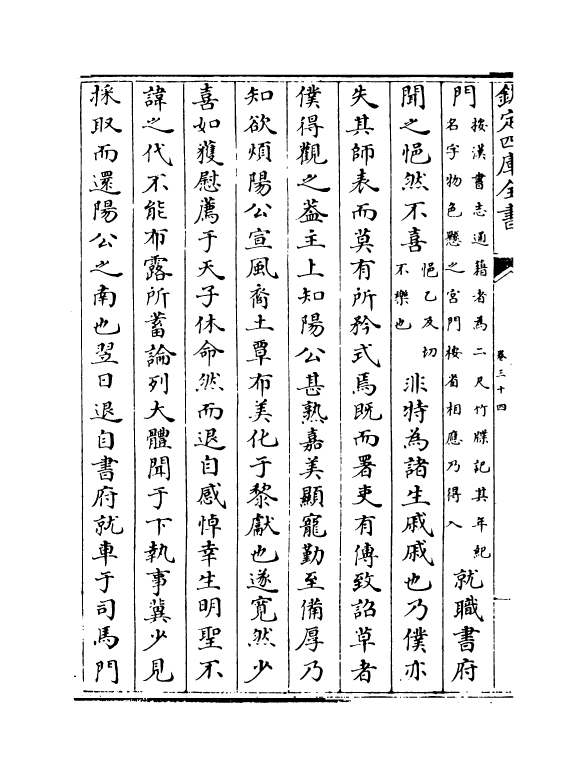 欽定四庫全書
卷三十四
門按漢書志通籍者為二尺竹牒記其年紀名字物色懸之宮門按省相應乃得入就職書府
聞之悒然不喜悒乙及切不樂也非特為諸生戚戚也乃僕亦
失其師表而莫有所矜式焉既而署吏有傳致詔草者
僕得觀之葢主上知陽公甚熟嘉美顯寵勤至備厚乃
知欲煩陽公宣風裔土覃布美化于黎獻也遂寛然少
喜如獲慰薦于天子休命然而退自感悼幸生明聖不
諱之代不能布露所蓄論列大體聞于下執事冀少見
採取而還陽公之南也翌日退自書府就車于司馬門